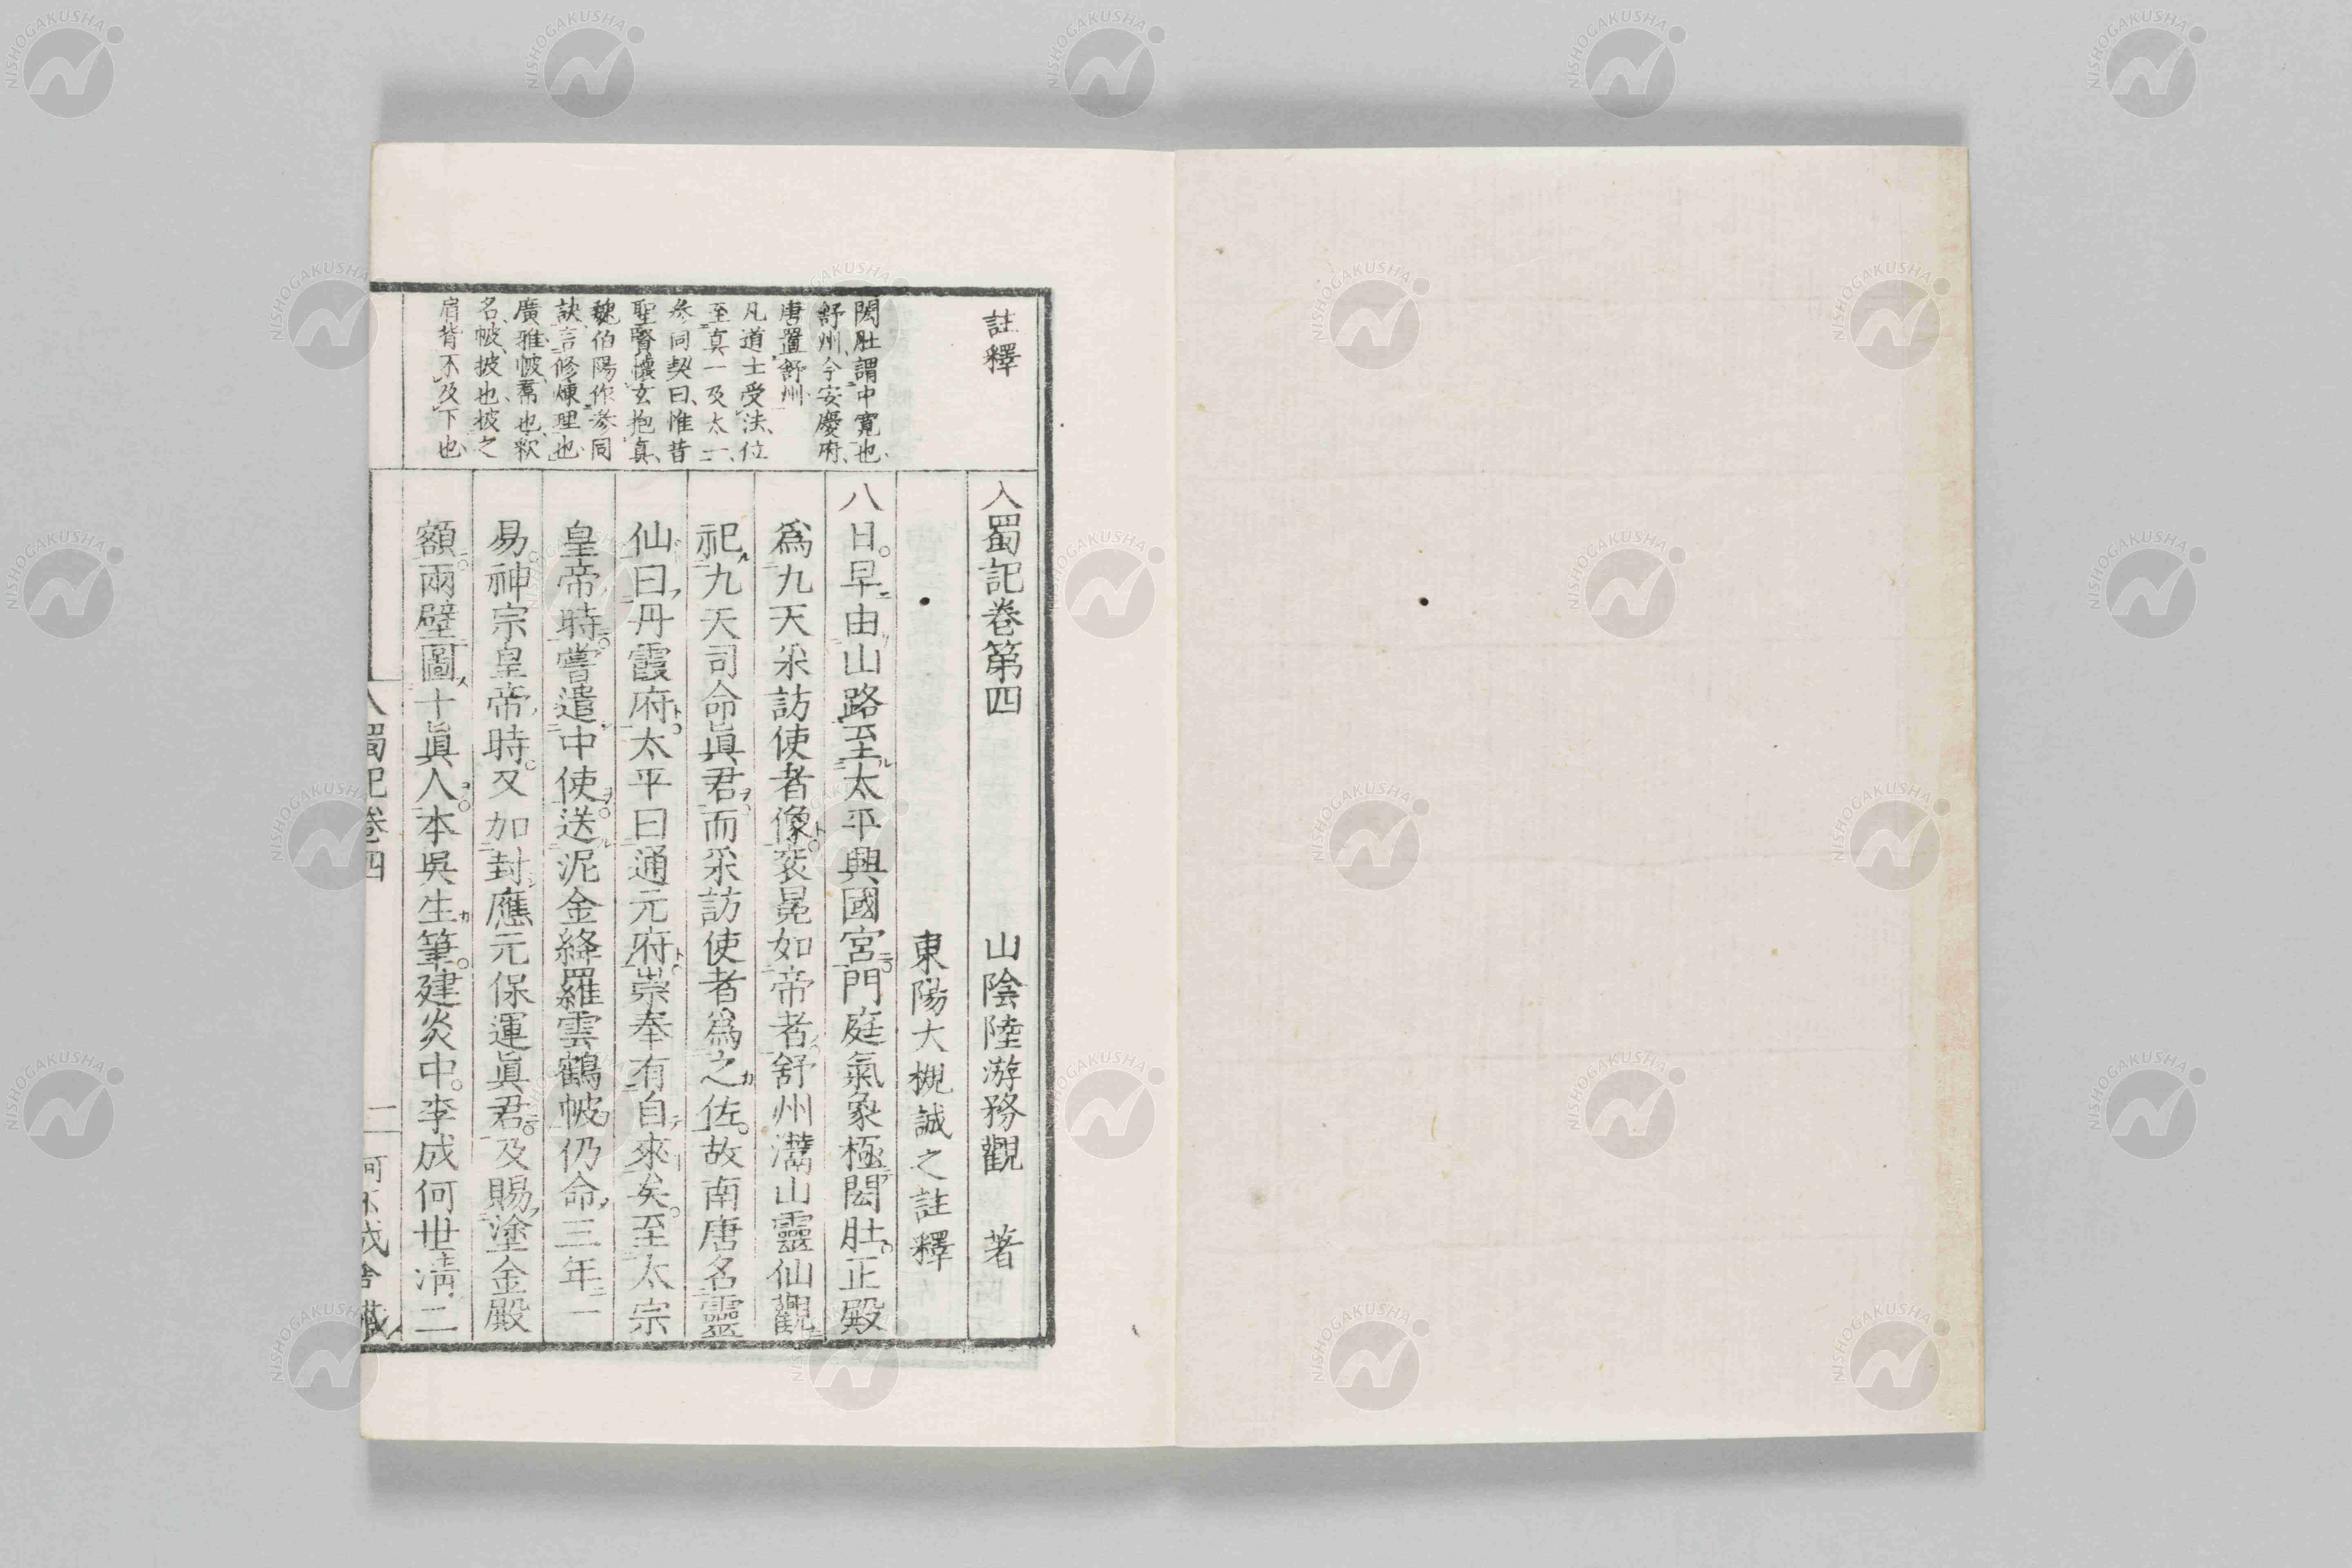 註釋
閎壯謂中寬也、
舒州、今安慶府、
唐置舒州
凡道士受法、位
至真一及太一、
參同契曰、惟昔
聖賢懷玄抱真、
魏伯陽作參同
訣、言修煉理也、
廣雅帔、帬也、釈
名、帔、披也、披之
肩背不及下也、
入蜀記卷第四　山陰陸游務觀　著
東陽大槻誠之註釋
八日。早由山路至太平興國宮門庭氣象極閎壯。正殿
爲九天采訪使者像。袞冕如帝者舒州灊山靈仙觀
祀九天司命眞君。而采訪使者爲之佐。故南唐名靈
仙曰丹霞府。太平曰通元府。崇奉有自來矣。至太宗
皇帝時。嘗遣中使。送泥金絳羅雲鶴帔仍命三年一
易。神宗皇帝時。又加封應元保運眞君。及賜塗金殿
額。兩壁圖十眞人。本吳生筆。建炎中。李成何世淸二
入蜀記卷四　一　何不成舍藏
NISHOGAKUSHA